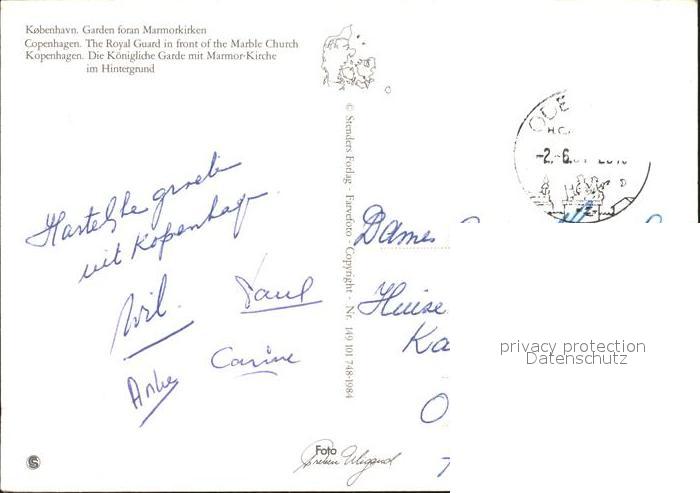 København. Garden foran Marmorkirken
Copenhagen. The Royal Guard in front of the Marble Church
Kopenhagen. Die Königliche Garde mit Marmor-Kirche
im Hintergrund
© Stenders Forlag - Farvefoto - Copyright - Nr. 149 101 748-1984
ODE
-2.-6.
Hartelijke groeten
uit Kopenhagen
Wil.
Paul
Carine
Anke
Dames
Huize
Ka
O
privacy protection
Datenschutz
Foto